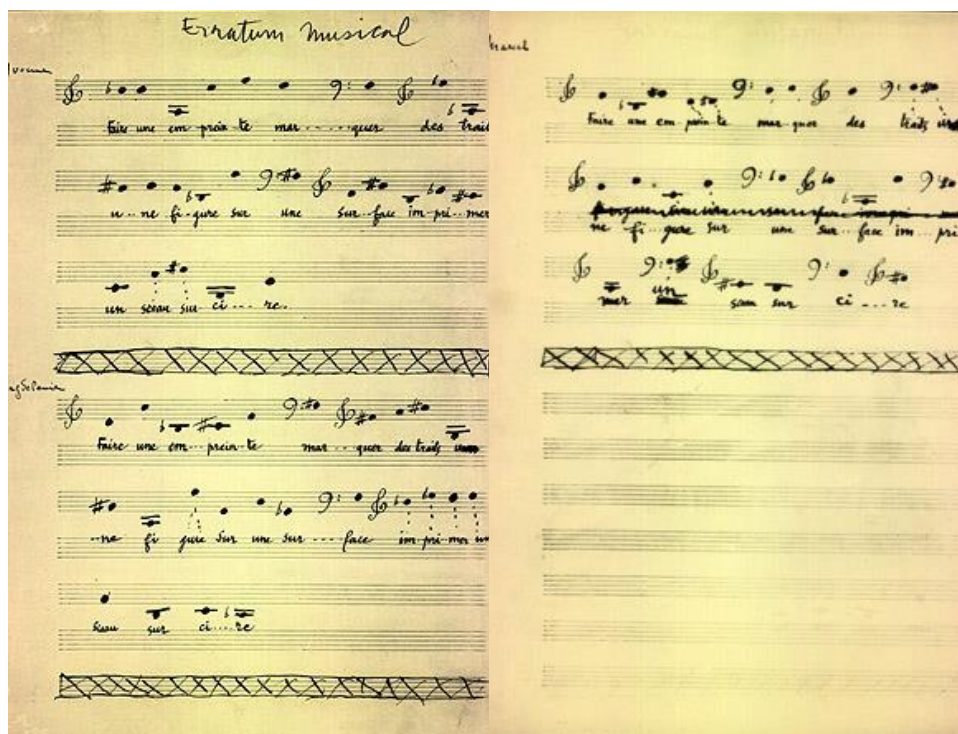 Erratum Musical
Yvonne
Faire une em prein te mar.....quer des traits
u...ne fi-gure sur une sur-face im-pri-mer
un sceau sur ci...re.
Faire une em...prein-te mar...quer des traits
...ne fi gure sur une sur....face im-pri-mer un
sceau sur ci....re
Marcel
Faire une em prein te mar-quer des traits
ne fi...gure sur une sur...face im...pri
mer un sceau sur ci....re